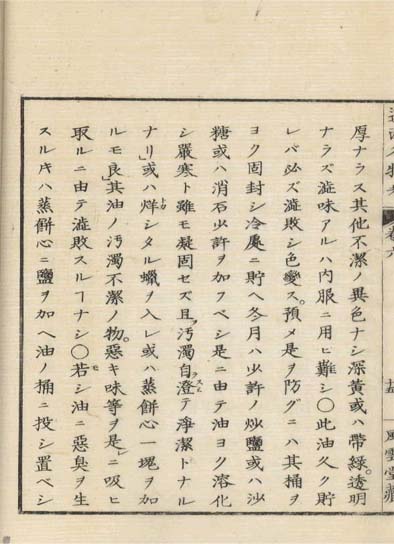 厚ナラス其他不潔ノ異色ナシ深黄或ハ帶綠。透明
ナラズ澁味アルハ內服ニ用ヒ難シ〇此油久ク貯
レバ必ズ澁敗シ色變ス。預メ是ヲ防グニハ其桶ヲ
ヨク固封シ冷處ニ貯ヘ冬月ハ少許ノ炒鹽或ハ沙
糖或ハ消石少許ヲ加フベシ是ニ由テ油ヨク溶化
シ嚴寒ト雖モ凝固セズ且汚濁自澄テ淨潔トナル
ナリ」或ハ烊シタル蠟ヲ入レ或ハ蒸餅心一塊ヲ加
ルモ良」其油ノ汚濁不潔ノ物。惡キ味等ヲ是」ニ吸ヒ
取ルニ由テ澁敗スルヿナシ〇若シ油ニ惡臭ヲ生
スルキハ蒸餅心ニ鹽ヲ加ヘ油ノ桶ニ投シ置ベシ
卷六
風雲堂藏